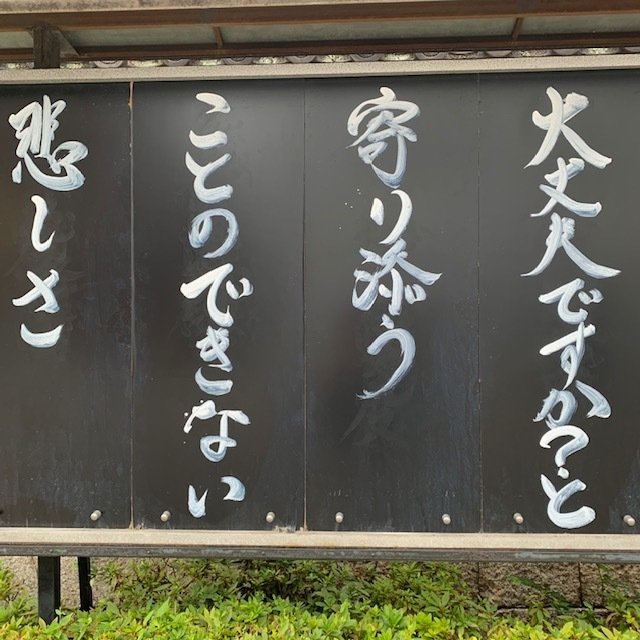 大丈夫ですか?と
寄り添う
ことのできない
悲しさ